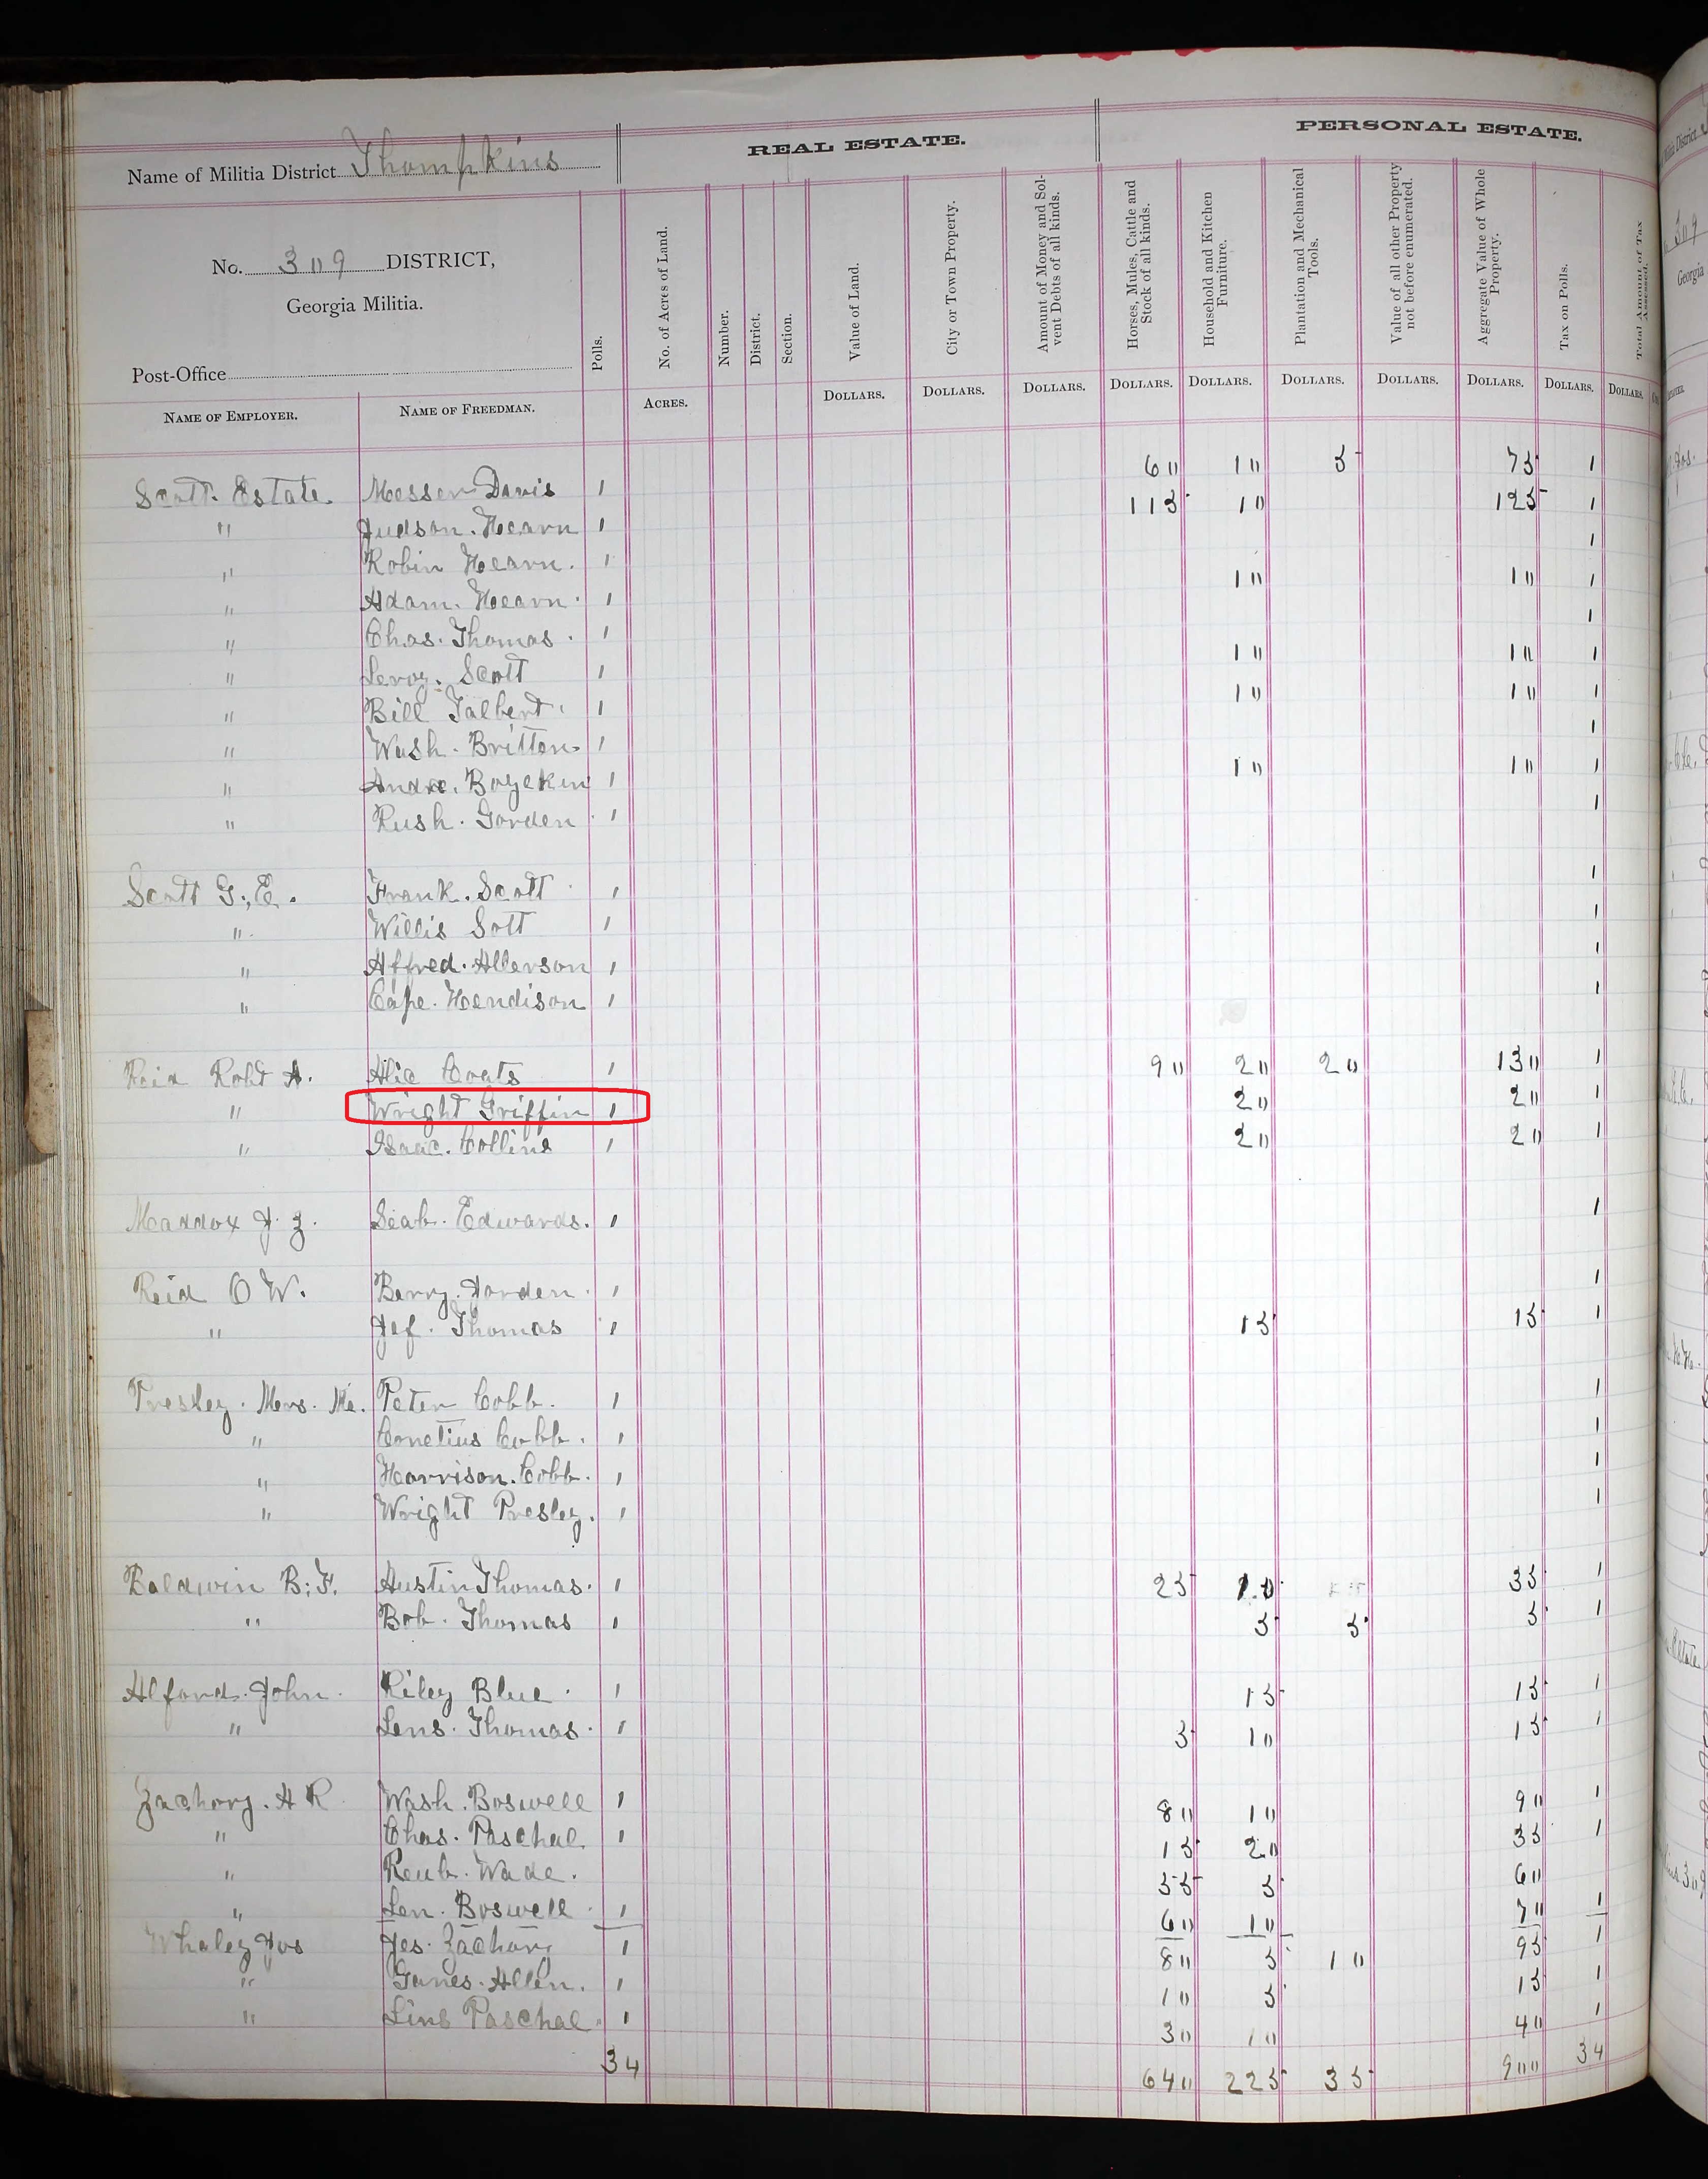 Name of Militia District Thompkins
REAL ESTATE.
PERSONAL ESTATE.
No. 309 DISTRICT,
Georgia Militia.
Post-Office
NAME OF EMPLOYER.
NAME OF FREEDMAN.
Polls.
No. of Acres of Land.
Number.
District.
Section.
Value of Land.
City or Town Property.
Amount of Money and Solvent Debts of all kinds.
Horses, Mules, Cattle and Stock of all kinds.
Household and Kitchen Furniture.
Plantation and Mechanical Tools.
Value of all other Property not before enumerated.
Aggregate Value of Whole Property.
Tax on Polls.
Total Amount of Tax Assessed.
ACRES. DOLLARS. DOLLARS. DOLLARS. DOLLARS. DOLLARS. DOLLARS. DOLLARS. DOLLARS. DOLLARS. DOLLARS.
Scott Estate Messer Davis 1 60 10 5 75 1
" Judson. Hearn 1 115 10 125 1
" Robin Hearn. 1 1
" Adam. Hearn. 1 10 10 1
" Chas. Thomas. 1 1
" Leroy. Scott 1 10 10 1
" Bill Talbert. 1 10 10 1
" Wush. Britten 1 1
" Andre. Boyekin 1 10 10 1
" Rush. Gorden. 1 1
Scott G. E. Frank. Scott 1 1
" Willis Sott 1 1
" Alfred. Allerson 1 1
" Cape. Hendison 1 1
Reid Robt A. Alic Coats 1 90 20 20 130 1
" Wright Griffin 1 20 20 1
" Isaac. Collins 1 20 20 1
Maddox J. Z. Seab. Edwards. 1 1
Reid O W. Berry. Jorden. 1 1
" Jef. Thomas 1 15 15 1
Presley. Mrs. Peter Cobb. 1 1
" Conelius Cobb. 1 1
" Harrison. Cobb. 1 1
" Wright Presley. 1 1
Baldwin B. F. Austin Thomas. 1 25 10 35 1
" Bob. Thomas 1 5 5 5 1
Alford. John. Riley Blue. 1 15 15 1
" Lens. Thomas. 1 5 10 15 1
Zachory. A R Wash. Boswell 1 80 10 90 1
" Chas. Paschal. 1 15 20 35 1
" Reub. Wade. 55 5 60
" Len. Boswell. 1 60 10 70 1
Whaley Jos Jes. Zachory 1 80 5 10 95 1
" Ganes. Allen. 1 10 5 15 1
" Lins Paschal. 1 30 10 40 1
34 640 225 35 900 34